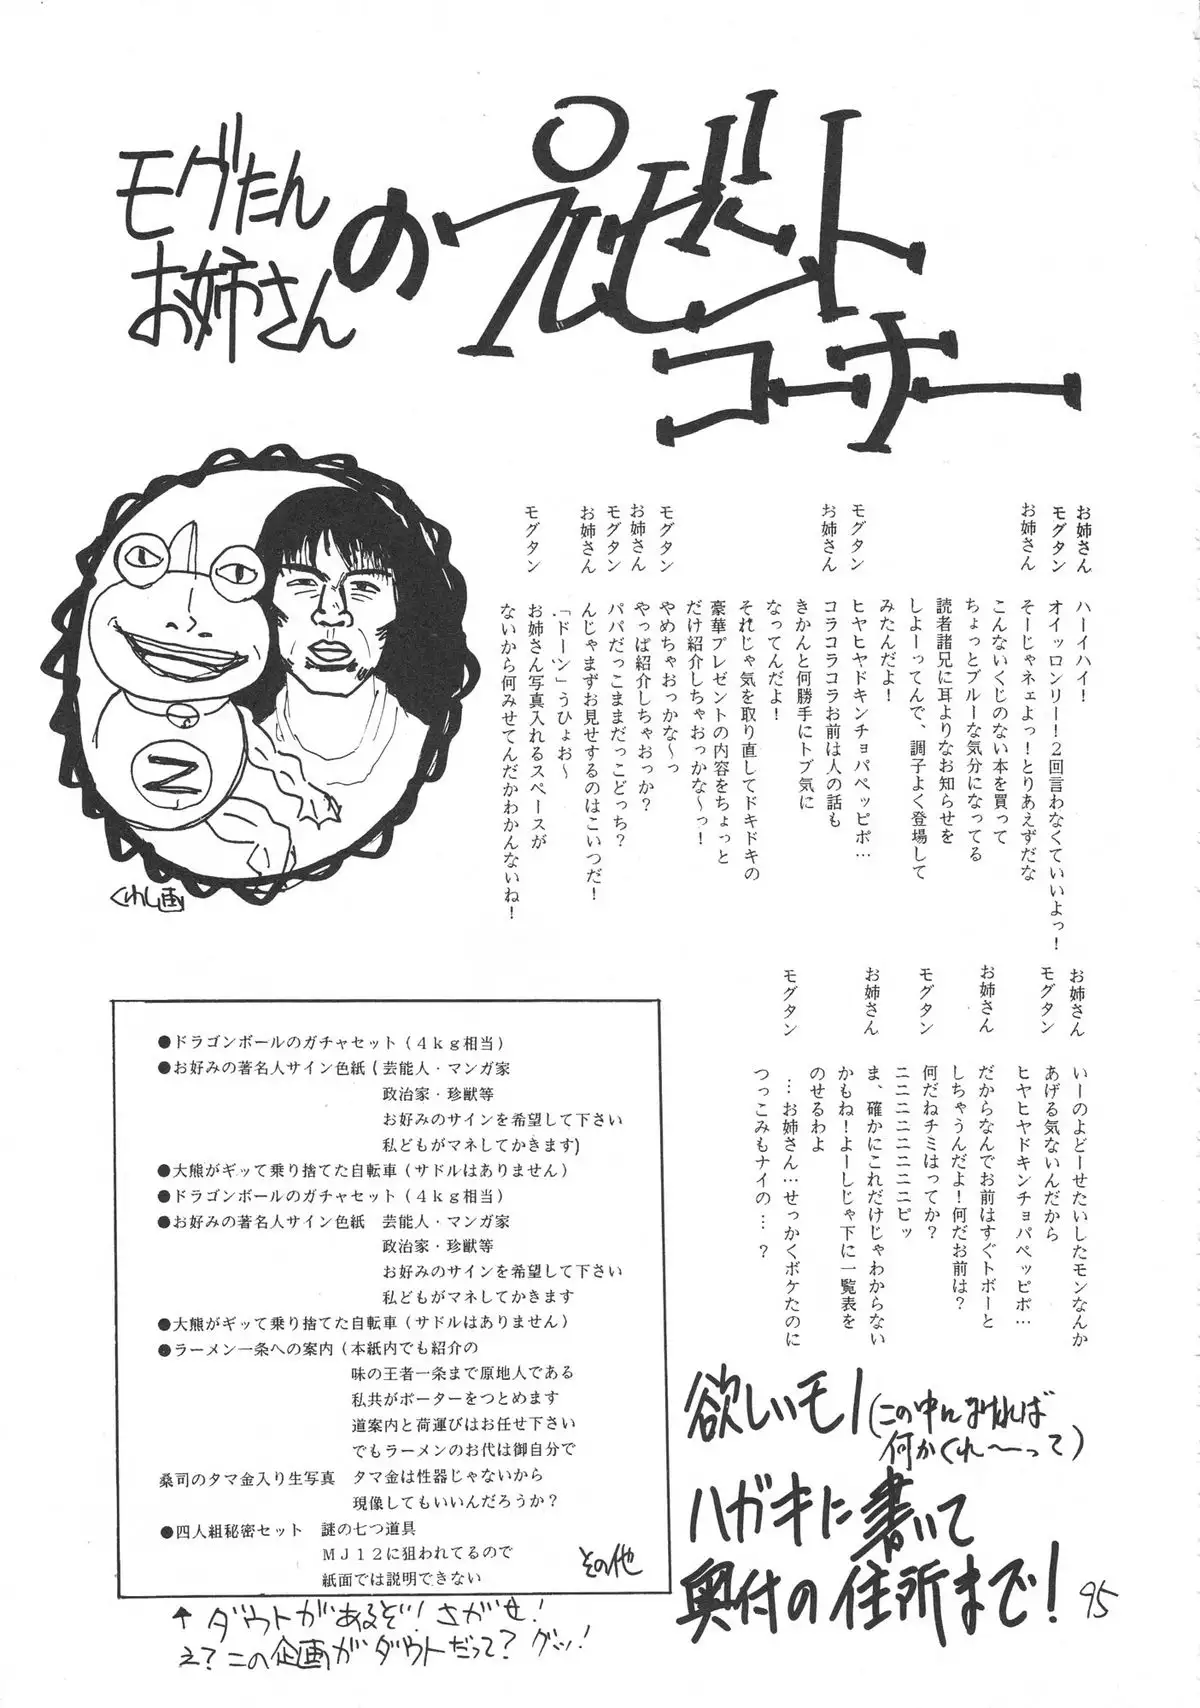 モグたん
お姉さん
の
プレゼント
コーナー
お姉さん　ハーイハイ！
モグタン　オイッロンリー！２回言わなくていいよっ！
お姉さん　そーじゃネェよっ！とりあえずだな
こんないくじのない本を買って
ちょっとブルーな気分になってる
読者諸兄に耳よりなお知らせを
しよーってんで、調子よく登場して
みたんだよ！
モグタン　ヒヤヒヤドキンチョパペッピポ…
お姉さん　コラコラコラお前は人の話も
きかんと何勝手にトブ気に
なってんだよ！
それじゃ気を取り直してドキドキの
豪華プレゼントの内容をちょっと
だけ紹介しちゃおっかな～っ！
モグタン　やめちゃおっかな～っ
お姉さん　やっぱ紹介しちゃおっか？
モグタン　パパだっこままだっこどっち？
お姉さん　んじゃまずお見せするのはこいつだ！
「ドーン」うひょお～
モグタン　お姉さん写真入れるスペースが
ないから何みせてんだかわかんないね！
くわし画
お姉さん　いーのよどーせたいしたモンなんか
あげる気ないんだから
モグタン　ヒヤヒヤドキンチョパペッピポ…
お姉さん　だからなんでお前はすぐトボーと
しちゃうんだよ！何だお前は？
モグタン　何だねチミはってか？
ニニニニニニニピッ
お姉さん　ま、確かにこれだけじゃわからない
かもね！よーしじゃ下に一覧表を
のせるわよ
モグタン　…お姉さん…せっかくボケたのに
つっこみもナイの…？
●ドラゴンボールのガチャセット（４ｋｇ相当）
●お好みの著名人サイン色紙（芸能人・マンガ家
政治家・珍獣等
お好みのサインを希望して下さい
私どもがマネしてかきます）
●大熊がギッて乗り捨てた自転車（サドルはありません）
●ドラゴンボールのガチャセット（４ｋｇ相当）
●お好みの著名人サイン色紙　芸能人・マンガ家
政治家・珍獣等
お好みのサインを希望して下さい
私どもがマネしてかきます
●大熊がギッて乗り捨てた自転車（サドルはありません）
●ラーメン一条への案内（本紙内でも紹介の
味の王者一条まで原地人である
私共がポーターをつとめます
道案内と荷運びはお任せ下さい
でもラーメンのお代は御自分で
桑司のタマ金入り生写真　タマ金は性器じゃないから
現像してもいいんだろうか？
●四人組秘密セット　謎の七つ道具
ＭＪ１２に狙われてるので
紙面では説明できない
その他
↑ダウトがあるぞ！さがせ！
え？この企画がダウトだって？グッ！
欲しいモノ（この中になければ
何かくれ～って）
ハガキに書いて
奥付の住所まで！
95
N